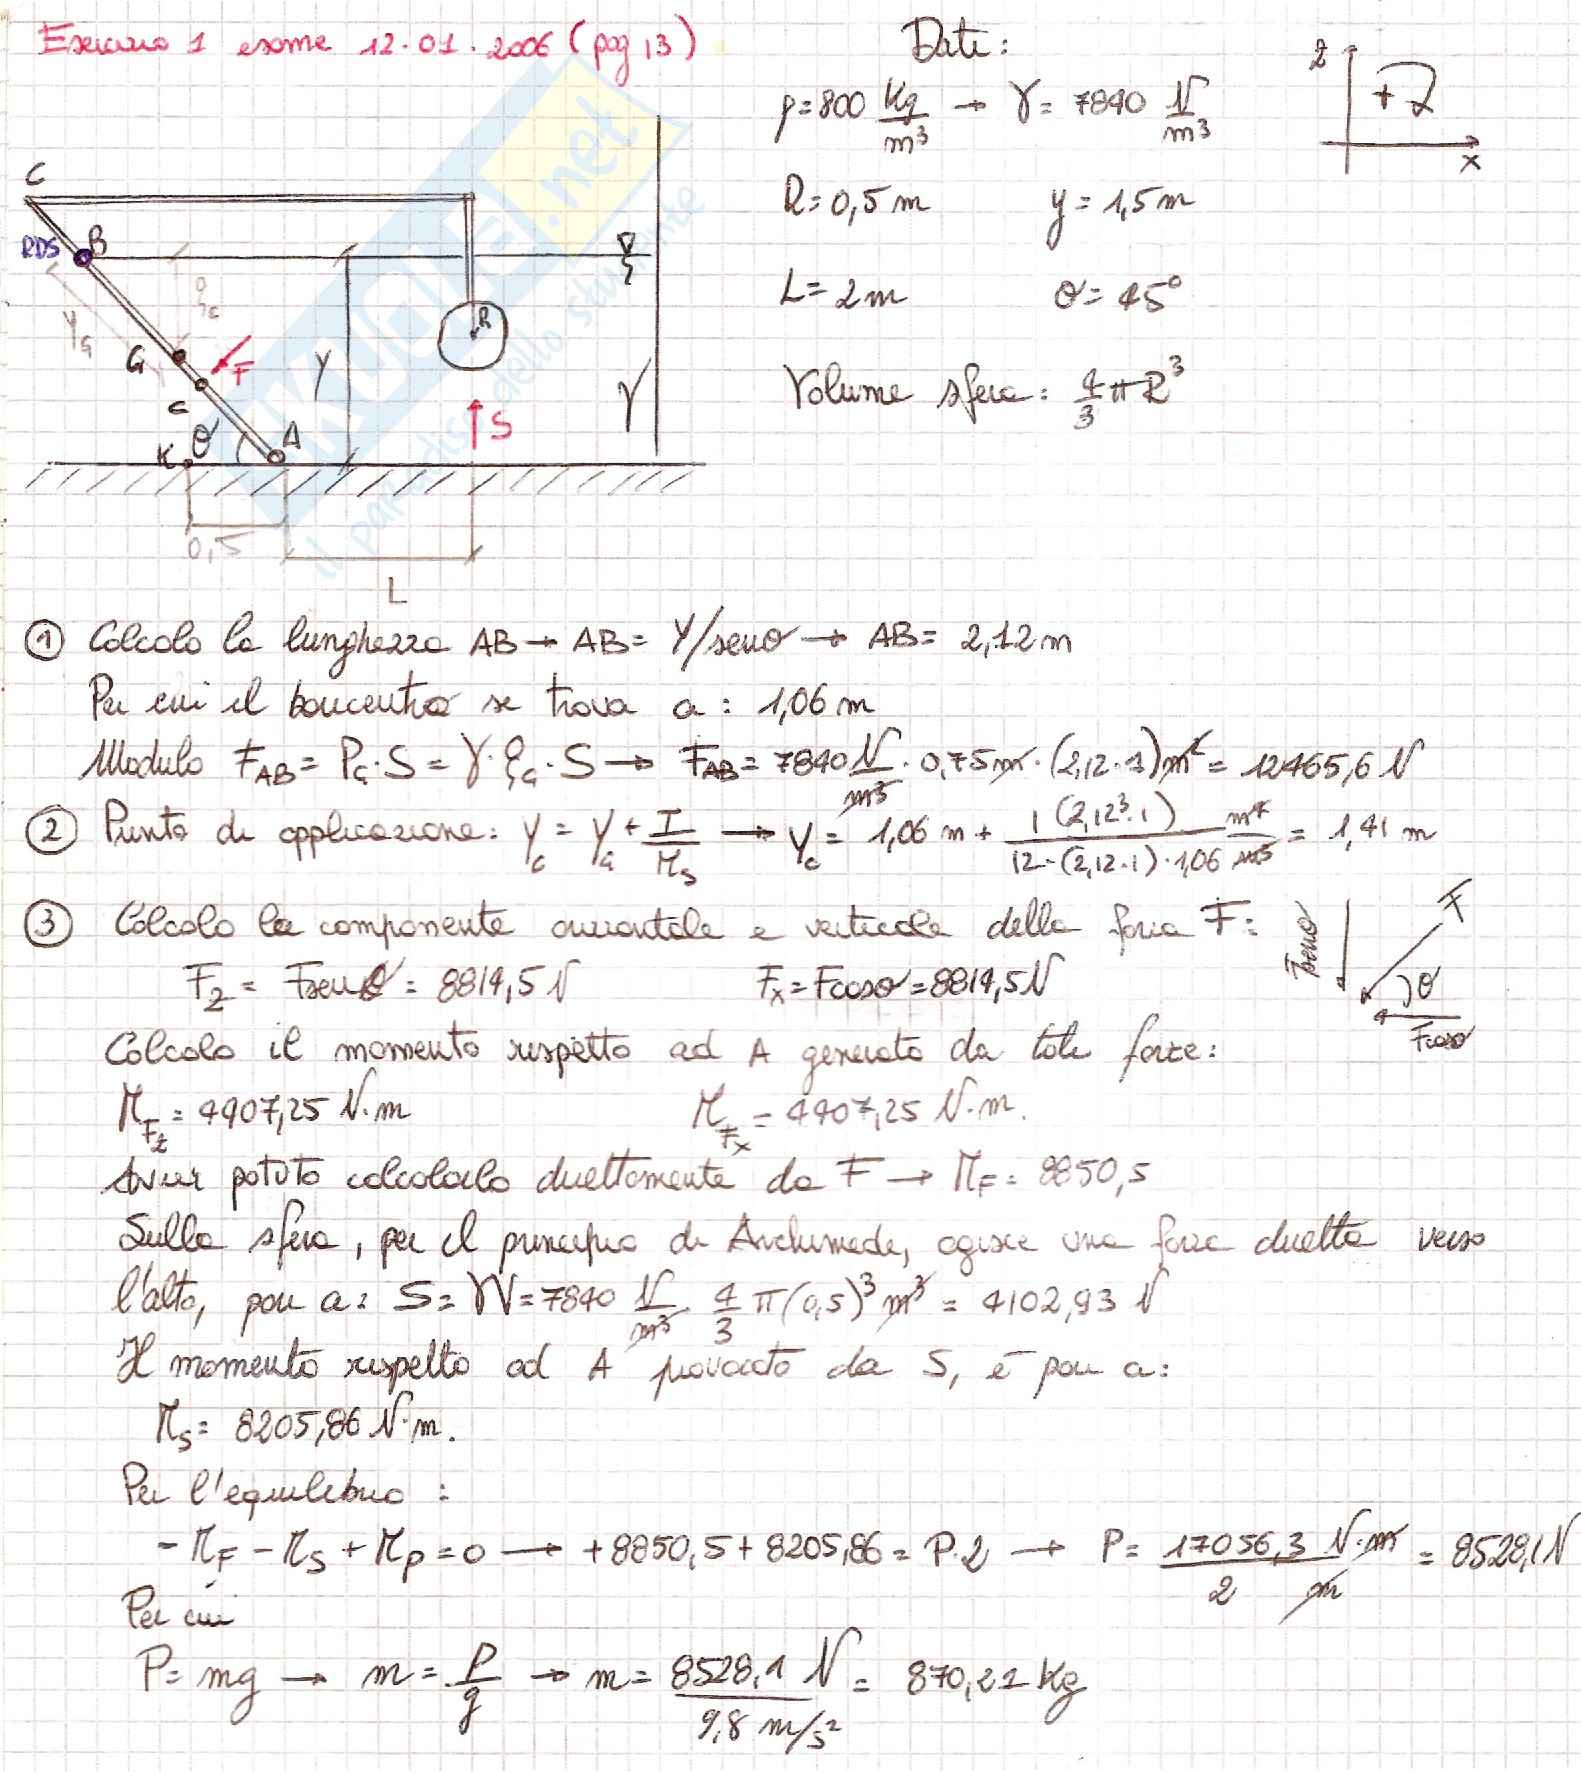 Esercizio 1 esame 12.01.2006 (pag 13)
Dati:
ρ=800 Kg/m³ → γ= 7840 N/m³
R=0,5 m y=1,5m
L=2m θ=45°
Volume sfera: 4/3 π R³
z
+
x
C
RDS B
ξG
YG
G
F
c
K θ A
Y
R
S
γ
0,5
L
SKUOLA.net
il paradiso dello studente
① Calcolo la lunghezza AB → AB= Y/senθ → AB= 2,12m
Per cui il baricentro si trova a: 1,06 m
Modulo F_AB = P_G·S = γ·ξ_G·S → F_AB = 7840 N/m³ · 0,75m · (2,12·1)m² = 12465,6 N
② Punto di applicazione: y_c = y_G + I/M_S → y_c = 1,06 m + 1(2,12³·1)/12·(2,12·1)·1,06 m⁴/m³ = 1,41 m
③ Calcolo la componente orizzontale e verticale della forza F:
F_z = Fsenθ = 8814,5 N F_x = Fcosθ = 8814,5N
Fsenθ F θ Fcosθ
Calcolo il momento rispetto ad A generato da tale forze:
M_Fz = 4407,25 N·m M_Fx = 4407,25 N·m.
Avrei potuto calcolarlo direttamente da F → M_F = 8850,5
Sulla sfera, per il principio di Archimede, agisce una forza diretta verso
l'alto, pari a: S = γV = 7840 N/m³ · 4/3 π (0,5)³ m³ = 4102,93 N
Il momento rispetto ad A provocato da S, è pari a:
M_S = 8205,86 N·m.
Per l'equilibrio :
- M_F - M_S + M_P = 0 → +8850,5 + 8205,86 = P·2 → P = 17056,3 N·m / 2 m = 8528,1N
Per cui
P = mg → m = P/g → m = 8528,1 N / 9,8 m/s² = 870,21 Kg